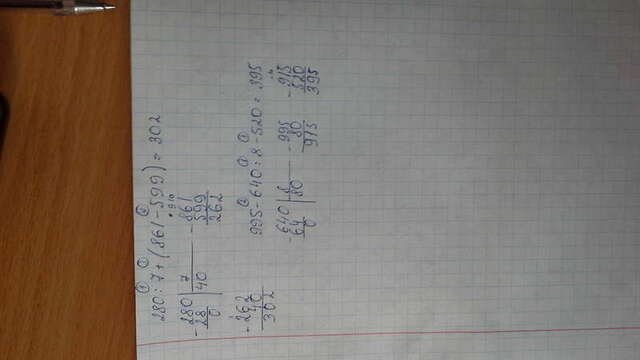 280:7+(861-599)=302
-280 | 7
28 | 40
0
-861
599
262
-262
40
302
995-640:8-520=395
-640 | 8
64 | 80
0
-995
80
915
-915
520
395